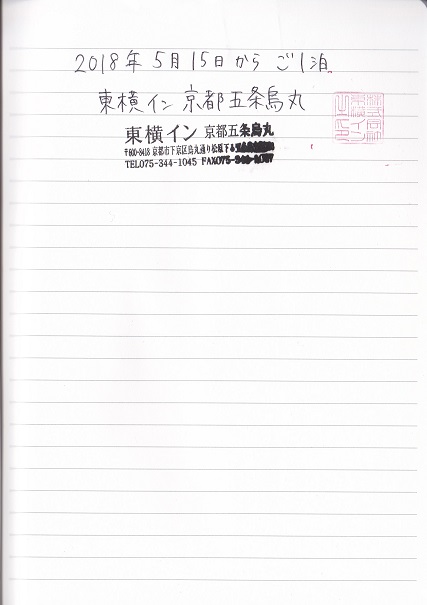 2018年 5月15日から ご1泊
東横イン 京都五条烏丸
東横イン 京都五条烏丸
〒600-8418 京都市下京区烏丸通り松原下る
TEL075-344-1045 FAX075-344-1047